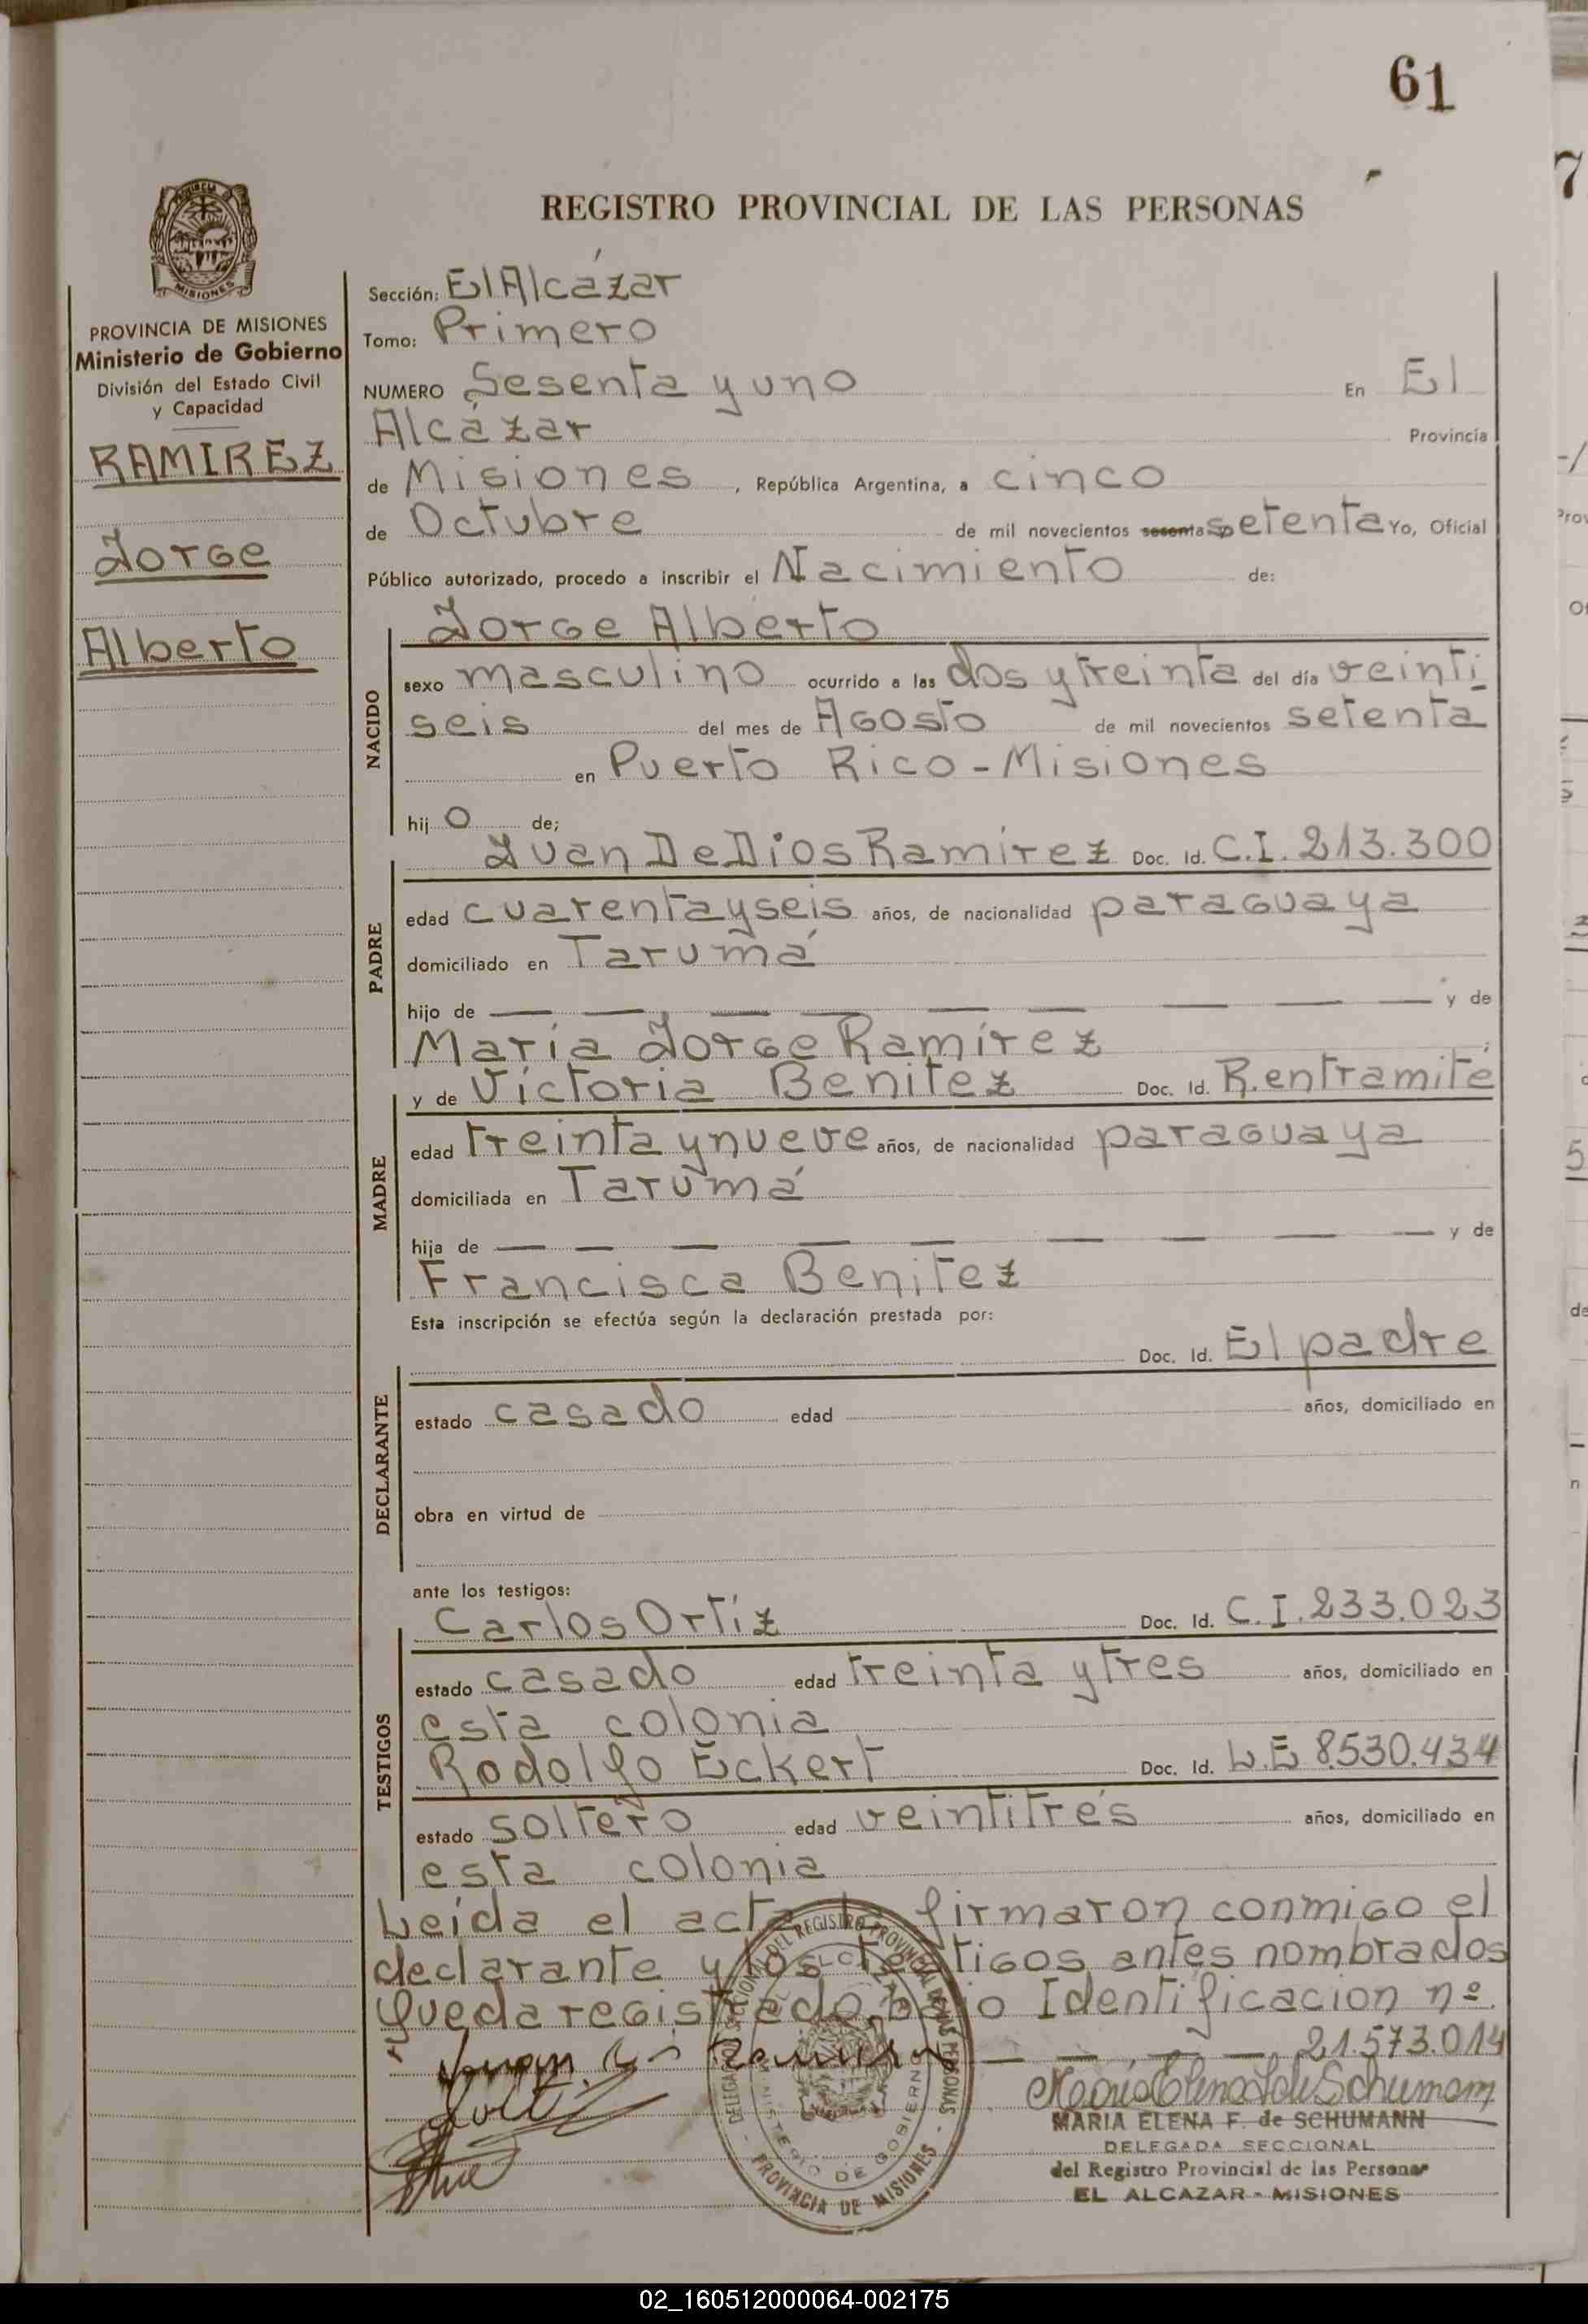 61
REGISTRO PROVINCIAL DE LAS PERSONAS
MISIONES
PROVINCIA DE MISIONES
Ministerio de Gobierno
División del Estado Civil
y Capacidad
RAMIREZ
Jorge
Alberto
Sección: El Alcázar
Tomo: Primero
NUMERO Sesenta y uno En El
Alcázar Provincia
de Misiones, República Argentina, a cinco
de Octubre de mil novecientos sesenta setenta Yo, Oficial
Público autorizado, procedo a inscribir el Nacimiento de:
NACIDO
Jorge Alberto
sexo masculino ocurrido a las dos y treinta del día veinti
seis del mes de Agosto de mil novecientos setenta
en Puerto Rico - Misiones
hij o de;
PADRE
Juan De Dios Ramírez Doc. Id. C.I. 213.300
edad cuarenta y seis años, de nacionalidad paraguaya
domiciliado en Tarumá
hijo de — — — — — — — — y de
María Jorge Ramírez
MADRE
y de Victoria Benitez Doc. Id. R. en tramité
edad treinta y nueve años, de nacionalidad paraguaya
domiciliada en Tarumá
hija de — — — — — — — — — y de
Francisca Benitez
Esta inscripción se efectúa según la declaración prestada por:
DECLARANTE
Doc. Id. El padre
estado casado edad años, domiciliado en
obra en virtud de
ante los testigos:
TESTIGOS
Carlos Ortíz Doc. Id. C.I. 233.023
estado casado edad treinta y tres años, domiciliado en
esta colonia
Rodolfo Eckert Doc. Id. L.E 8.530.434
estado soltero edad veintitrés años, domiciliado en
esta colonia
Leída el acta la firmaron conmigo el
declarante y los testigos antes nombrados
Queda registrado bajo Identificacion nº
— — — — 21.573.014
María Elena F. de Schumann
MARIA ELENA F. de SCHUMANN
DELEGADA SECCIONAL
del Registro Provincial de las Personas
EL ALCAZAR - MISIONES
DELEGACION SECCIONAL DEL REGISTRO PROVINCIAL DE LAS PERSONAS
EL ALCAZAR
MINISTERIO DE GOBIERNO
- PROVINCIA DE MISIONES -
02_160512000064-002175